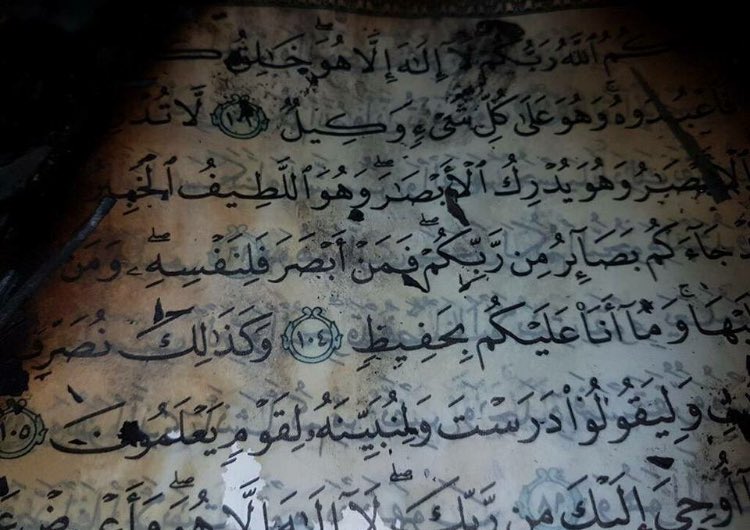 كُمُ ٱللَّهُ رَبُّكُمْ لَآ إِلَٰهَ إِلَّا هُوَۖ خَٰلِقُ
فَٱعْبُدُوهُۚ وَهُوَ عَلَىٰ كُلِّ شَىْءٍ وَكِيلٌ لَّا تُدْ
ٱلْأَبْصَٰرُ وَهُوَ يُدْرِكُ ٱلْأَبْصَٰرَۖ وَهُوَ ٱللَّطِيفُ ٱلْخَبِيرُ
جَآءَكُم بَصَآئِرُ مِن رَّبِّكُمْۖ فَمَنْ أَبْصَرَ فَلِنَفْسِهِۦۖ وَمَنْ
يْهَاۚ وَمَآ أَنَا۠ عَلَيْكُم بِحَفِيظٍ ١٠٤ وَكَذَٰلِكَ نُصَرِّفُ
وَلِيَقُولُوا۟ دَرَسْتَ وَلِنُبَيِّنَهُۥ لِقَوْمٍ يَعْلَمُونَ ١٠٥
أُوحِىَ إِلَيْكَ مِن رَّبِّكَۖ لَآ إِلَٰهَ إِلَّا هُوَۖ وَأَعْرِضْ عَ